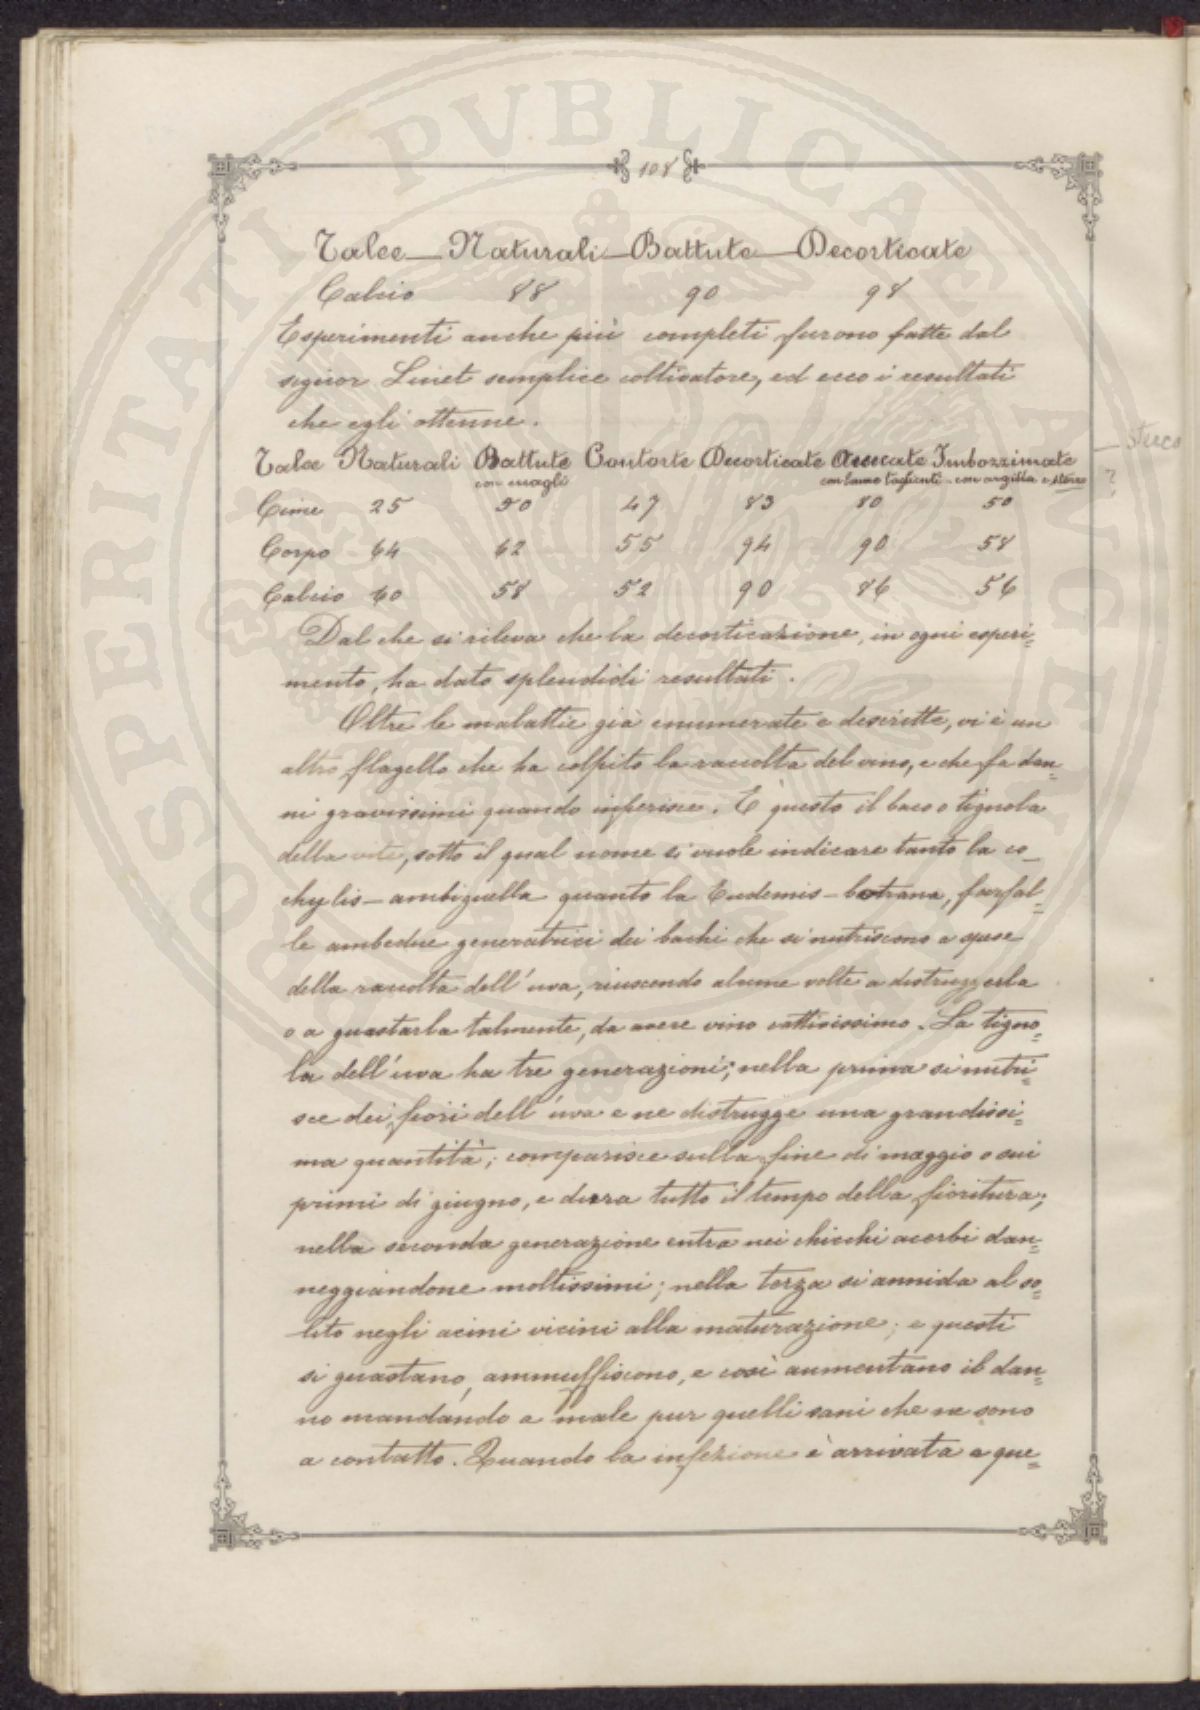 108
Talee — Naturali — Battute — Decorticate
Calcio 88 90 98
Esperimenti anche più completi furono fatte dal
signor Linet semplice coltivatore, ed ecco i resultati
che egli ottenne.
Talee Naturali Battute Contorte Decorticate Imbozzimate
con magli con lame taglienti - con argilla e sterco
Cime 25 50 47 83 80 50
Corpo 64 62 55 94 90 58
Calcio 60 58 52 90 86 56
Dal che si rileva che la decorticazione, in ogni esperi=
mento, ha dato splendidi resultati.
Oltre le malattie già enumerate e descritte, vi è un
altro flagello che ha colpito la raccolta del vino, e che fa dan=
ni gravissimi quando inferisce. È questo il baco o tignola
della vite, sotto il qual nome si vuole indicare tanto la co_
chylis-ambiguella quanto la Eudemis-botrana, farfal=
le ambedue generatrici dei bachi che si nutriscono a spese
della raccolta dell'uva, riuscendo alcune volte a distruggerla
o a guastarla talmente, da avere vino cattivissimo. La tigno=
la dell'uva ha tre generazioni; nella prima si nutri=
sce dei fiori dell'uva e ne distrugge una grandissi=
ma quantità; comparisce sulla fine di maggio o sui
primi di giugno, e durra tutto il tempo della fioritura;
nella seconda generazione entra nei chicchi acerbi dan=
neggiandone moltissimi; nella terza si annida al so=
lito negli acini vicini alla maturazione; e questi
si guastano, ammuffiscono, e così aumentano il dan=
no mandando a male pur quelli sani che ne sono
a contatto. Quando la infezione è arrivata a que=
— sterco
?
SOSPERITATI PVBLICAE AVGENDAE